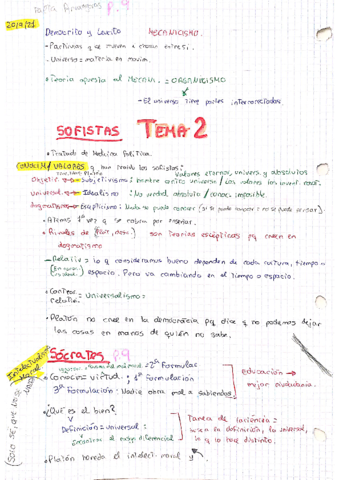 20/9/21
p.9
Demócrito y Leucito MECANICISMO.
- Partículas que mueven y chocan entre sí.
- Universo = materia en movim.
• Teoría opuesta al MECAN. = ORGANICISMO
- El universo tiene partes interrelacionadas.
SOFISTAS TEMA 2
• Tratado de Medicina
CONOCIM/VALORES y han traído los sofistas:
Valores eternos, univers. y absolutos
Objetiv. Subjetivismo: hombre
universal. Idealismo: No verdad absoluta / conoc. imposible.
dogmatismo Escepticismo: Nada se puede conocer (si se puede conocer no se puede enseñar).
• Atenas 1ª vez q se cobra por enseñar.
• Rivales de (Plat., Aristo.) son Teorías escépticas pq creen en
dogmatismo
- Relativ = lo q consideramos bueno depende de cada cultura, tiempo y
espacio. Para va cambiando en el tiempo o espacio.
• Contrar. relativ. = universalismo =
• Platón no cree en la democracia pq dice q no podemos dejar
las cosas en manos de quién no sabe.
Intelectualismo Moral
Sócrates p.9
= 2ª Formulac
• Conocer virtud. 1ª Formulación
3ª Formulación: Nadie obra mal a sabiendas
educación →
mejor ciudadanía.
• ¿Qué es el bien?
Definición = universal:
encontrar el rasgo diferencial
Tarea de
busca su definición, lo universal,
lo q lo hace distinto.
• Platón hereda el intelect. moral y
(Solo sé, que no sé nada)